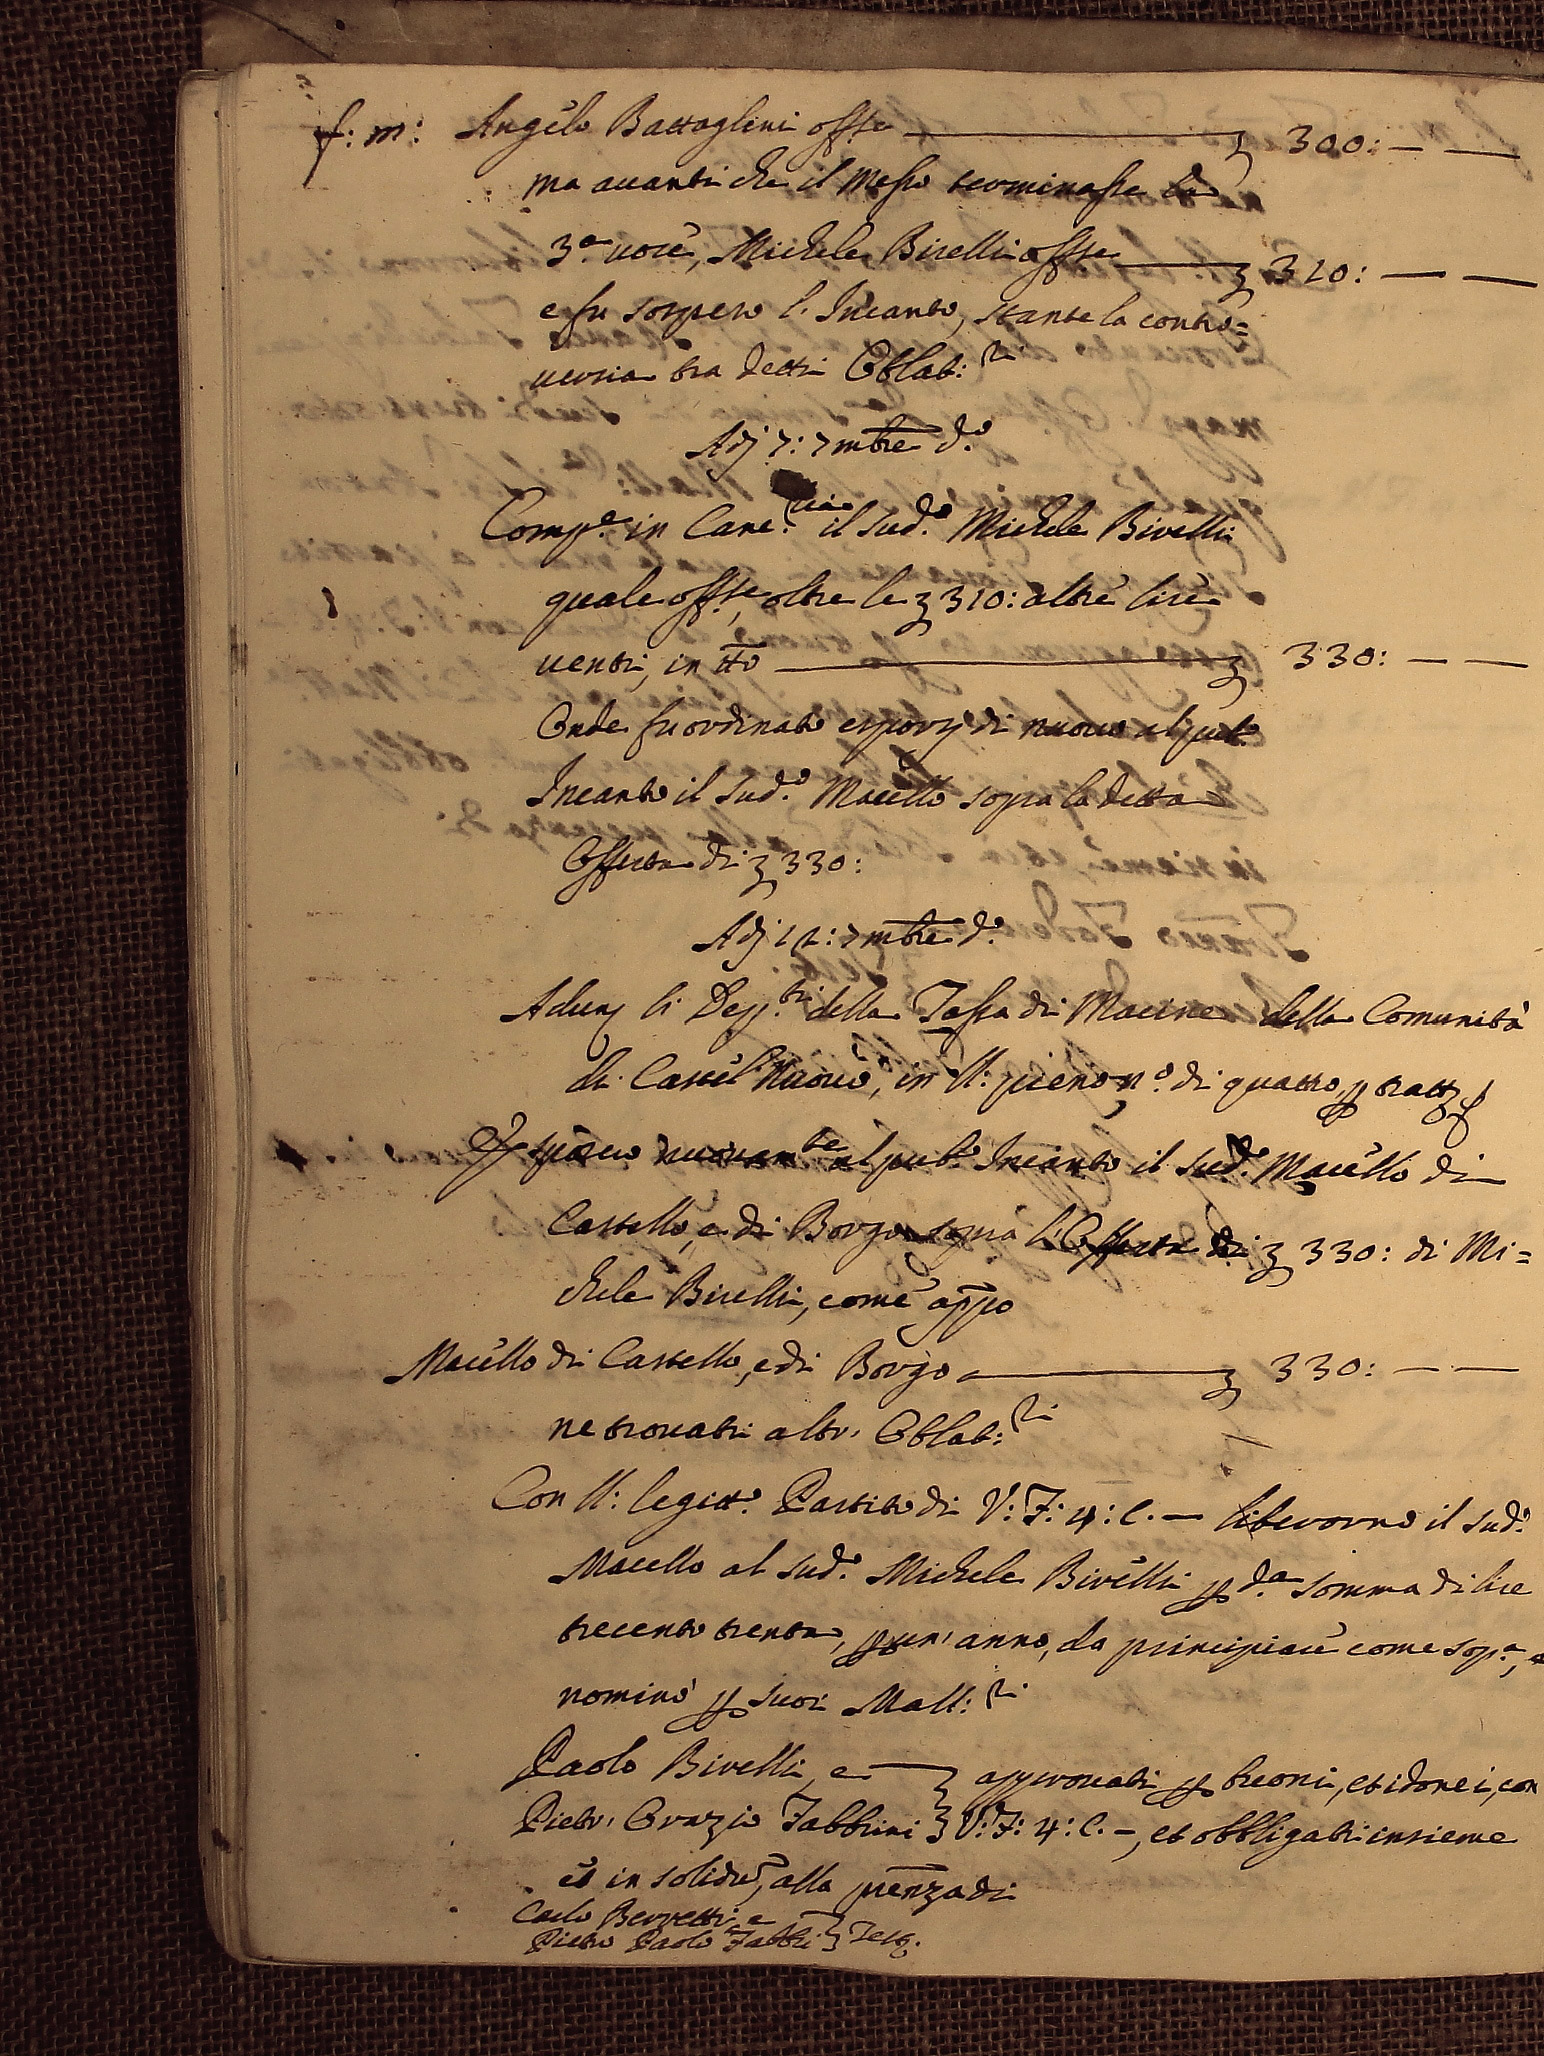 f: m: Angelo Battaglini off.se ʒ 300: — —
ma auanti che il Messo terminasse la
3.a uoce, Michele Birelli off.se ʒ 310: — —
e fu sospeso l'Incanto, stante la contro=
uersia tra detti Oblat:ri
Adj 7: 7mbre d.o
Comp.e in Canc.ria il sud.o Michele Birelli
quale off.se, oltre le ʒ 310: altre lire
uenti, in tto ʒ 330: — —
Onde fu ordinato esporsi di nuouo al pub.o
Incanto il sud.o Macello sopra la detta
Offerta di ʒ 330:
Adj 12: 7mbre d.o
Adun. li Dep.ti della Tassa di Macine della Comunità
di Castel Nuouo, in N: pieno n.o di quattro, p tratt.
Esposero nuouam.te al pub.o Incanto il sud.o Macello di
Castello, e di Borgo sopra l'Offerta di ʒ 330: di Mi=
chele Birelli, come appo
Macello di Castello, e di Borgo ʒ 330: — —
ne trouati altri Oblat:ri
Con N: legitt.o Partito di V: F: 4: C. — liberorno il sud.o
Macello al sud.o Michele Birelli p d.a somma di lire
trecento trenta, p un'anno, da principiare come sop.a, e
nominò p suoi Mall:ri
Paolo Birelli, e } approuati p buoni, et idonei, con
Pietr' Orazio Fabbrini } V: F: 4: C. —, et obbligati insieme
et in solidu, alla prenza di
Carlo Berretti, e
Pietro Paolo Fabbri } Test.